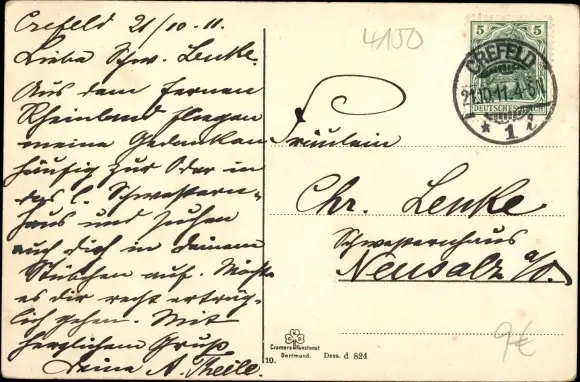 Crefeld 21/10-11.
Liebe Schw. Lenke.
Aus dem fernen
Rheinland fliegen
meine Gedanken
häufig zur Oder in
das l. Schwestern-
haus und suchen
auch dich in deinem
Stübchen auf. Möchte
es dir recht erträg-
lich gehen. Mit
herzlichem Gruß
Deine A. Theile.
4150
5 5
CREFELD
21.10.11.4-5N
DEUTSCHES REICH
* 1 i
Fräulein
Chr. Lenke
Schwesternhaus
Neusalz a/O.
Cramers Kunstanst
Dortmund.
Dess. d 824
10.
9€